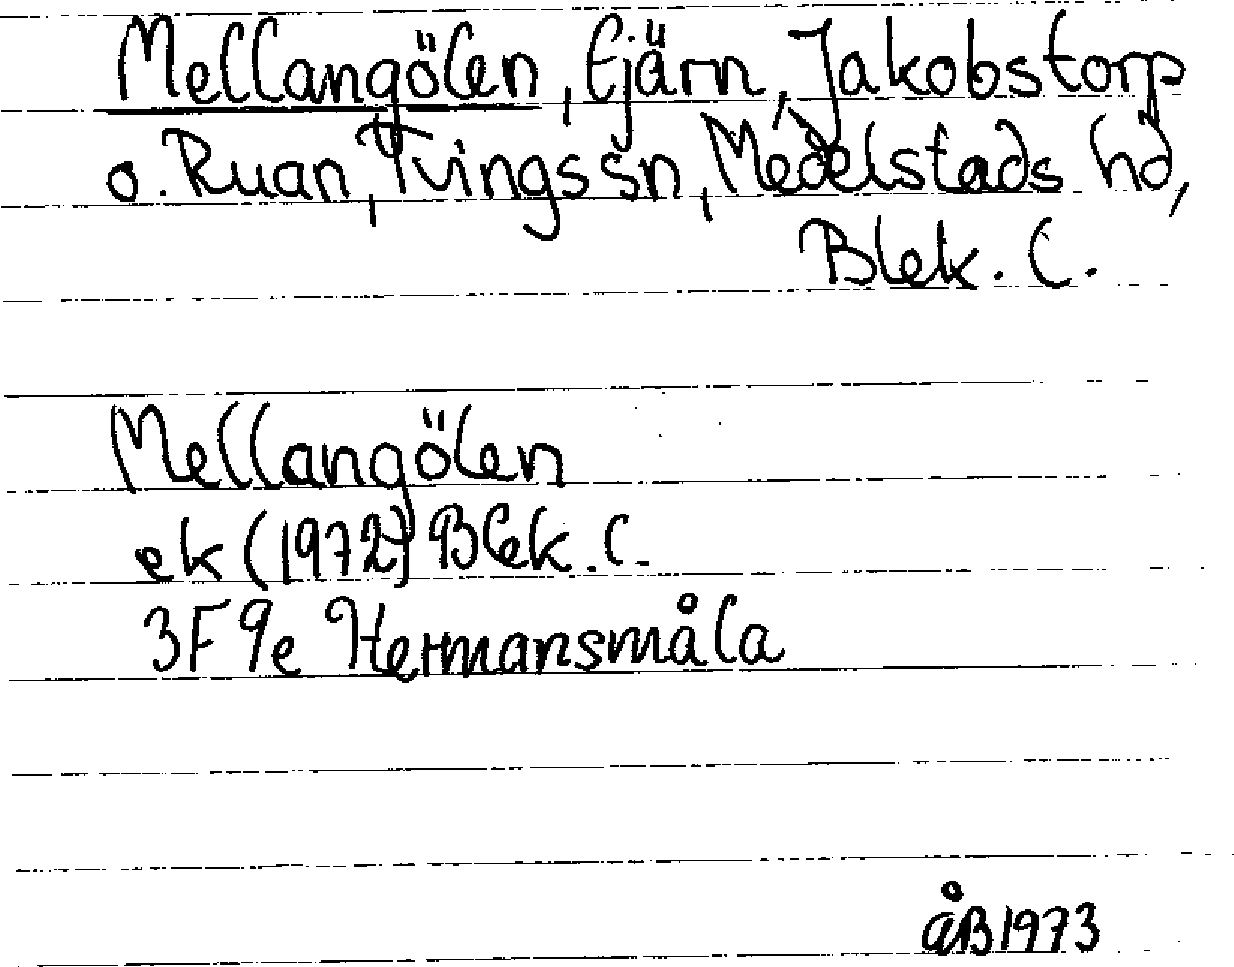 Mellangölen, tjärn, Jakobstorp
o. Ruan, Tvings sn, Medelstads hd,
Blek. l.
Mellangölen
ek (1972) Blek. l.
3F 9e Hermansmåla
åB 1973